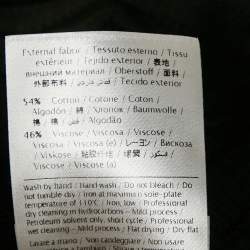 External fabric / Tessuto esterno / Tissu
extérieur / Tejido exterior / 表地 /
внешний материал / Oberstoff / 面料 /
外部布料 / / Tecido exterior
54% Cotton / Cotone / Coton /
Algodón / 綿 / Хлопок / Baumwolle /
棉 / 棉 / قطن / Algodão
46% Viscose / Viscosa / Viscose /
Viscosa / Viscosa (e) / レーヨン / Вискоза
/ Viskose / 粘胶纤维 / 嫘縈 / فسكوز /
Viscose
Wash by hand / Hand wash / Do not bleach / Do
not tumble dry / Iron at maximum sole-plate
temperature of 110°C / Iron, low / Professional
dry cleaning in hydrocarbons - Mild process /
Petroleum solvent only, short cycle / Professional
wet cleaning - Mild process / Flat drying / Dry flat
Lavare a mano / Non candeggiare / Non
usare